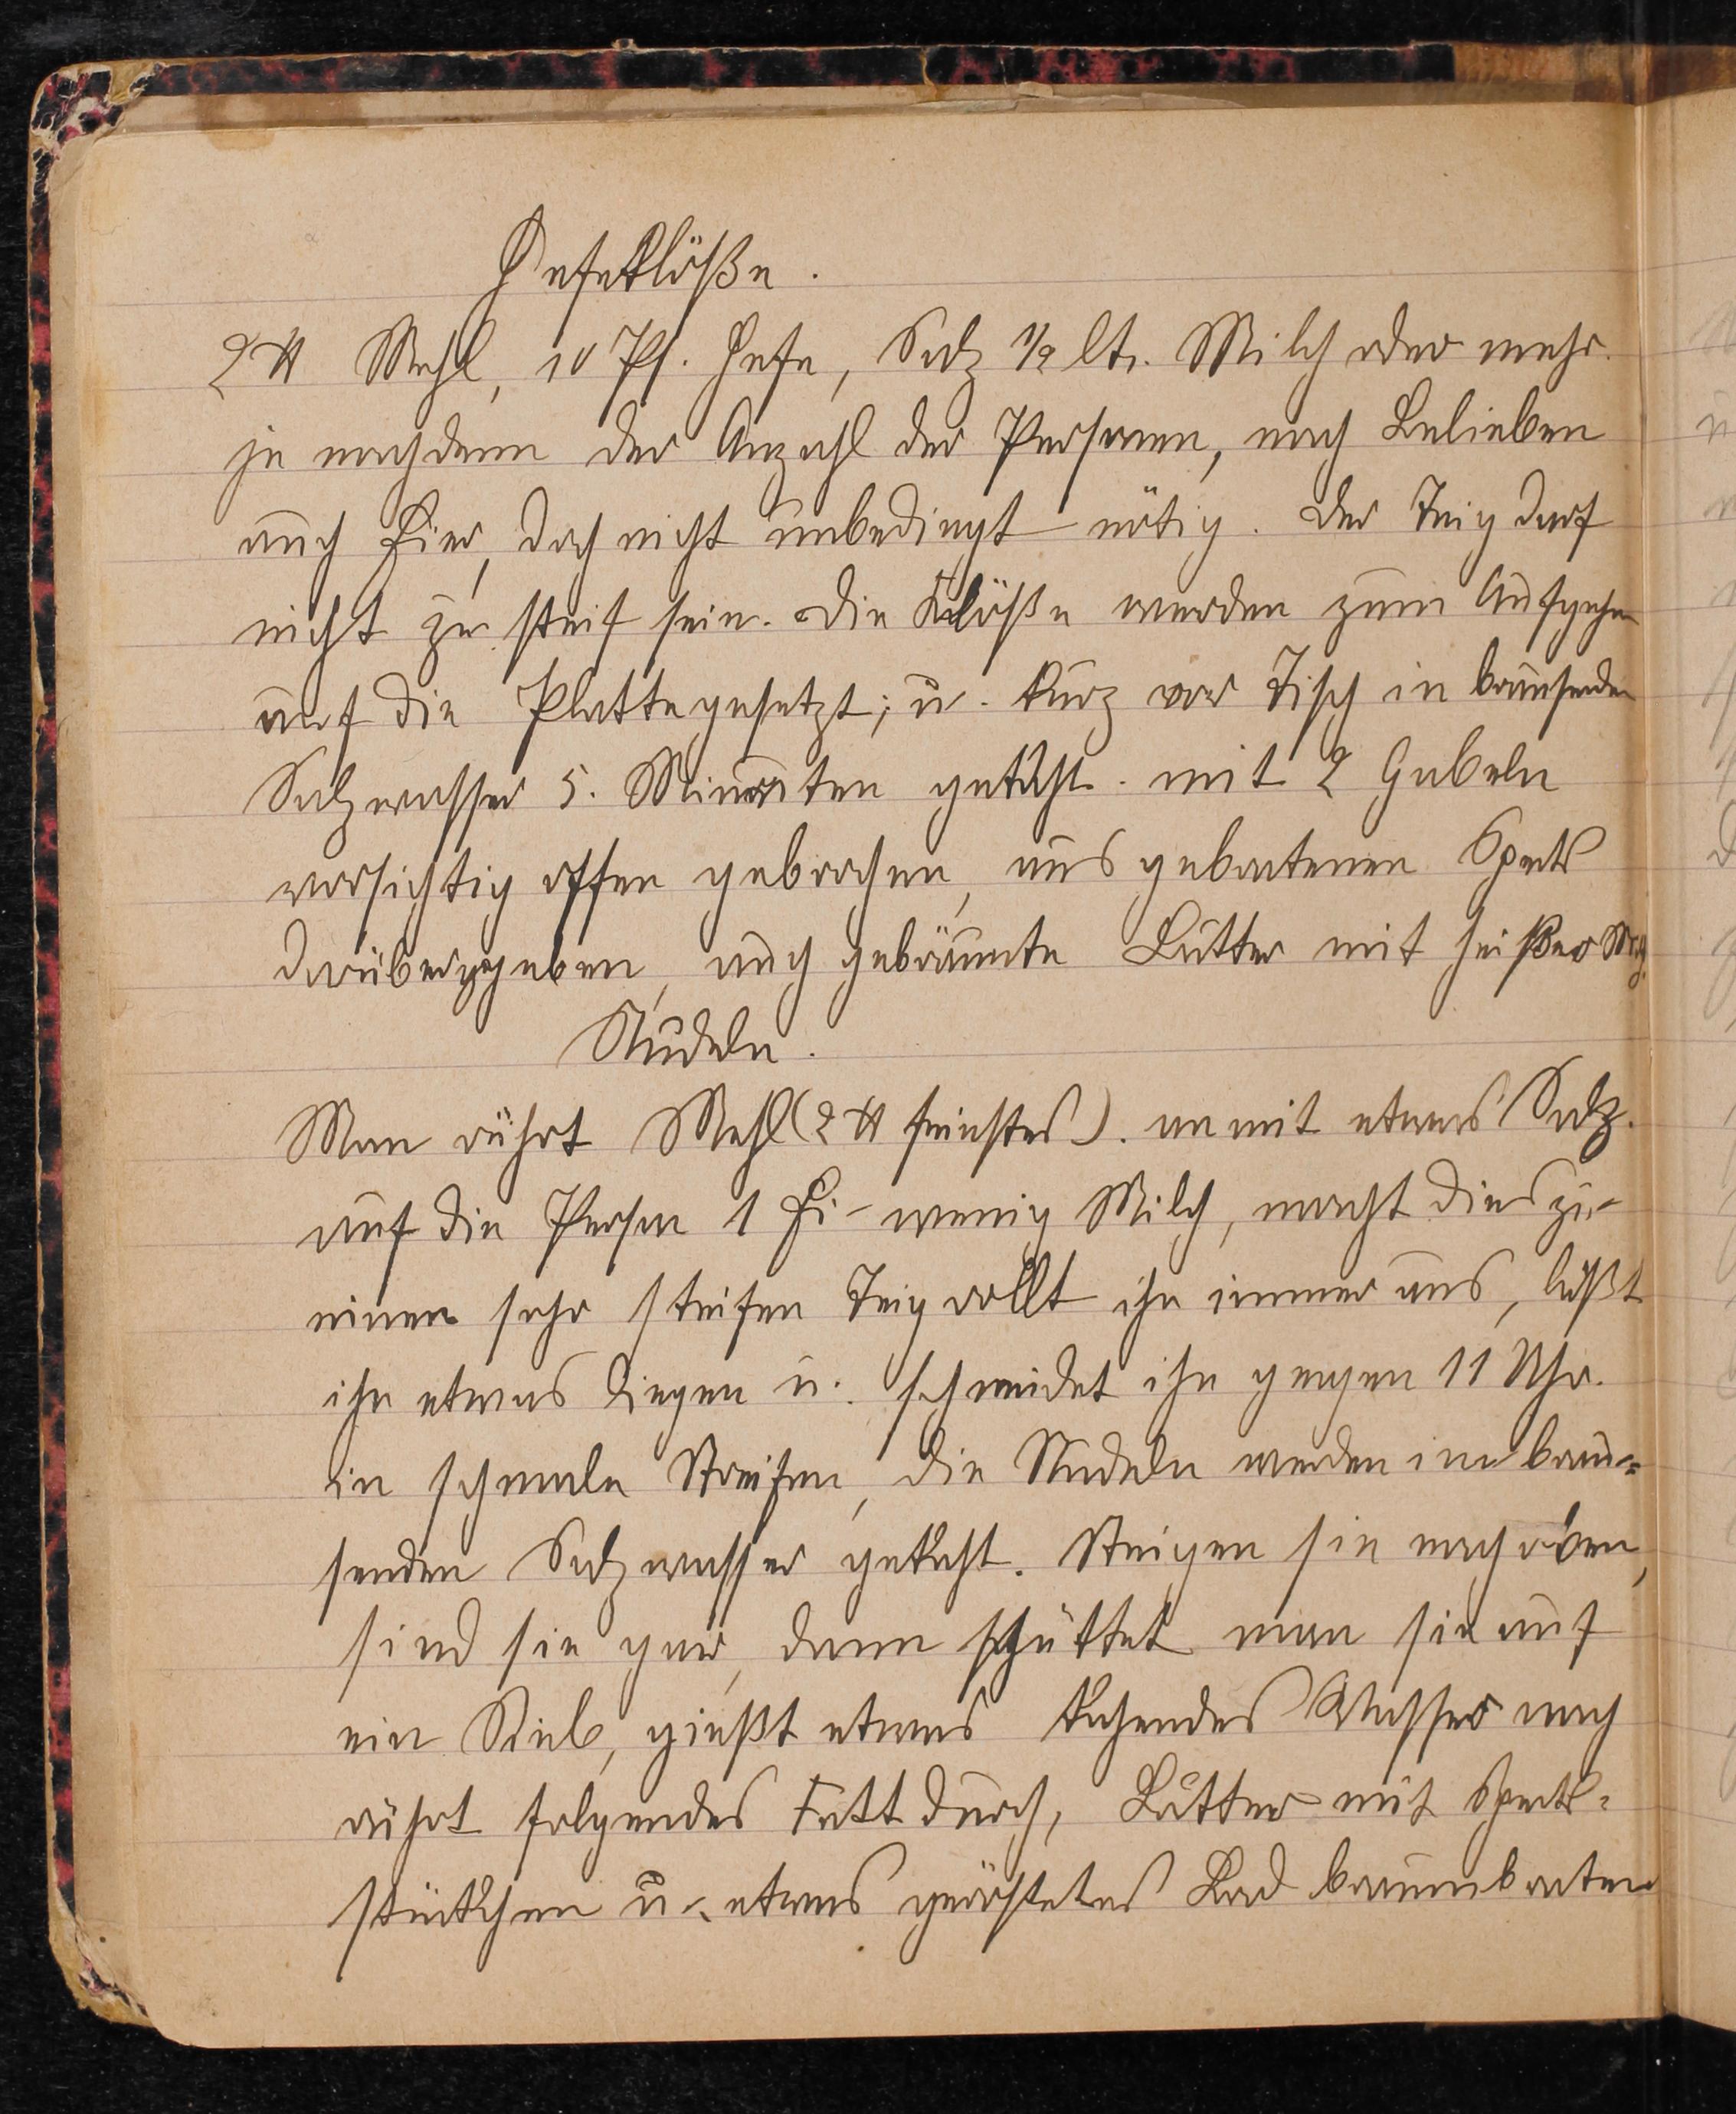 Hefeklöße.
2 ℔ Mehl, 10 Pf. Hefe, Salz 1/2 ltr. Milch oder mehr.
je nachdem der Anzahl der Personen, nach Belieben
auch Eier, doch nicht unbedingt nötig. Der Teig darf
nicht zu steif sein. Die Klöße werden zum Aufgehn
auf die Platte gesetzt; u. kurz vor Tisch in brausenden
Salzwasser 5. Minuten gekocht. mit 2 Gabeln
vorsichtig offen gebrochen, ausgebratenen Speck
darübergegeben, auch gebräunte Butter mit heißer Mch.
Nudeln.
Man rührt Mehl (2 ℔ feinstes). an mit etwas Salz.
auf die Person 1 Ei - wenig Milch, macht dies zu
einen sehr steifen Teig rollt ihn immer aus, läßt
ihn etwas liegen u. schneidet ihn gegen 11 Uhr.
in schmale Streifen, die Nudeln werden im brau=
senden Salzwasser gekocht. Steigen sie nach oben,
sind sie gar, dann schüttet man sie auf
ein Sieb, gießt etwas kochendes Wasser nach
rührt folgendes Fett durch, Butter mit Speck=
stückchen u. etwas geröstetes Brod braunbraten